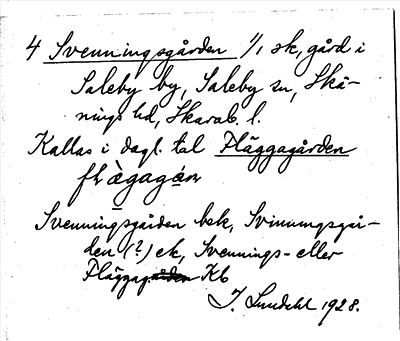 4 Svenningsgården 1/1 sk, gård i
Saleby by, Saleby sn, Skå-
nings hd, Skarab. l.
Kallas i dagl. tal Fläggagården
Svenningsgården bek, Svinnungsgår-
den (?) ek, Svennings- eller
Fläggag. Kb
J. Lundahl 1928.